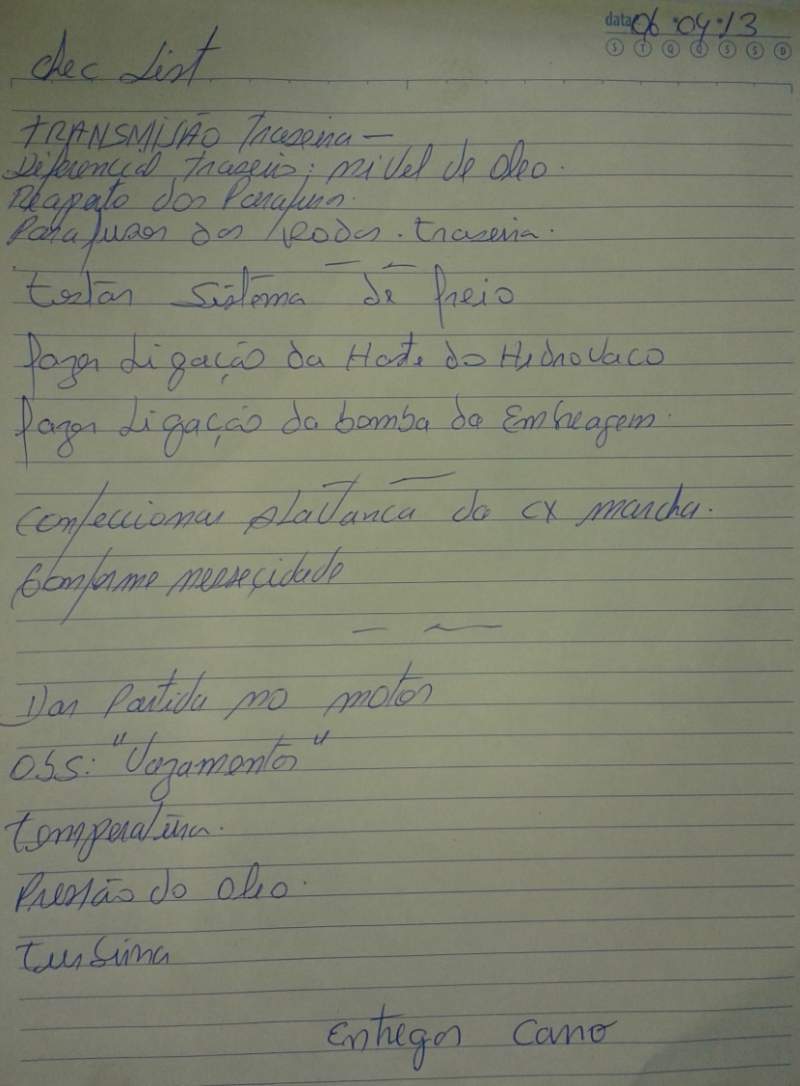 data 06.04.13
S T Q Q S S D
chec List
TRANSMISÃO Traseira -
Diferencial traseiro: nivel de oleo.
Reapeto dos Parafuso.
Parafusos das Rodas. traseira.
testar Sistema de freio
fazer Ligação da Haste do Hidrovaco
fazer Ligação da bomba da Embreagem.
Confeccionar alavanca da cx marcha.
Conforme nessecidade
Dar Partida no motor
OBS: "Vazamentos"
temperatura.
Pressão do oleo.
turbina
Entregar Carro